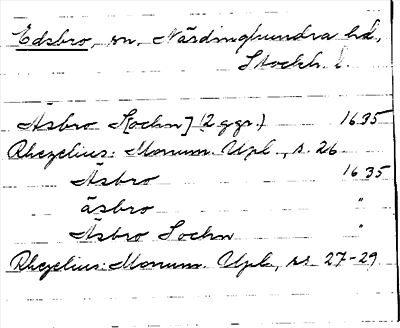 Edsbro, sn, Närdinghundra hd,
Stockh. l.
Åsbro Sochn] (2 ggr.) 1635
Rhezelius: Monum. Upl., s. 26
Åsbro 1635
åsbro "
Åsbro Sochn "
Rhezelius: Monum. Upl., ss. 27-29